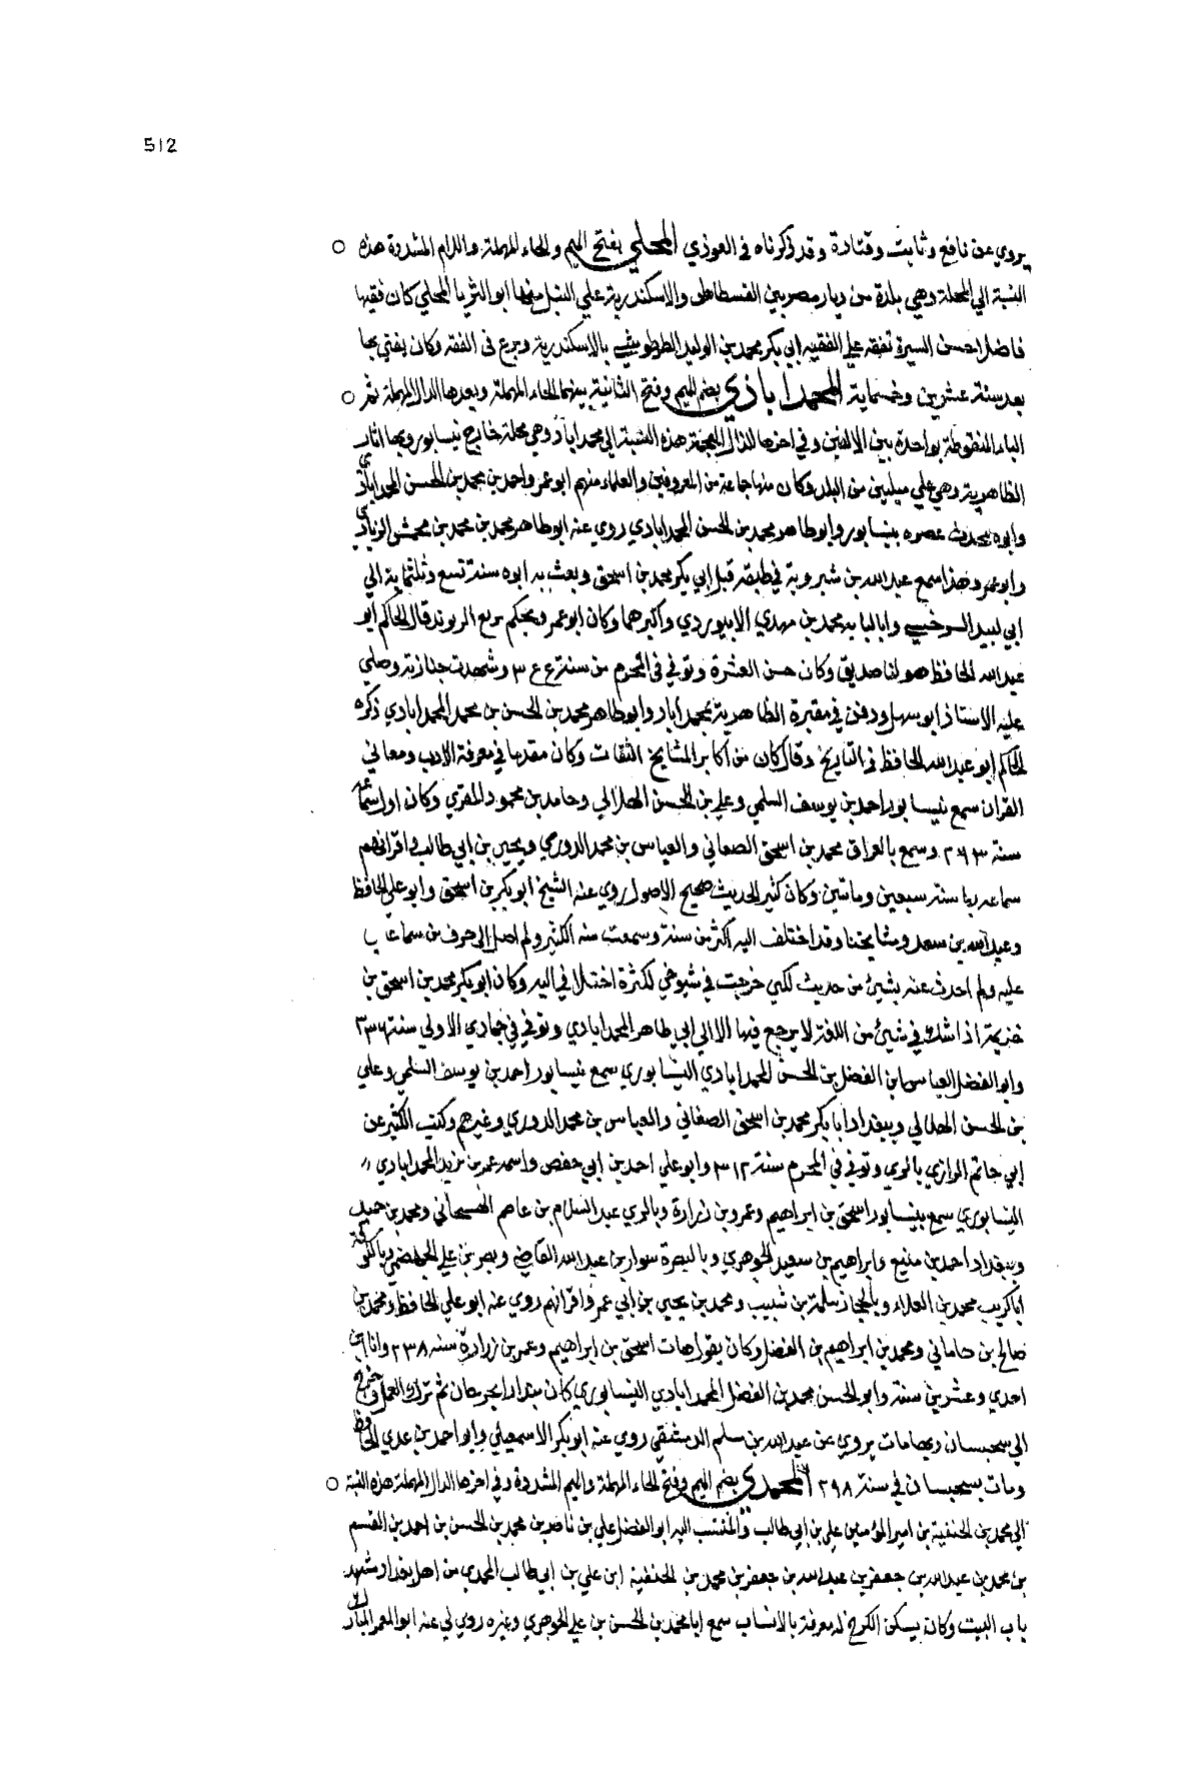 512
يروي عن نافع وثابت وقتادة وقد ذكرناه في العوذي المحلي بفتح الميم والحاء المهملة واللام المشددة هذه ○
النسبة الي المحلة وهي بلدة من ديار مصر بين الفسطاط والاسكندرية علي النيل منها ابو الثريا المحلي كان فقيها
فاضلا حسن السيرة تفقه علي الفقيه ابي بكر محمد بن الوليد الطرطوشي بالاسكندرية وبرع في الفقه وكان يفتي بها
بعد سنة عشرين وخمسماية المحمداباذي بضم الميم وفتح الثانية بينهما الحاء المهملة وبعدها الدال المهملة ثم ○
الباء المنقوطة بواحدة بين الالفين وفي اخرها الذال المعجمة هذه النسبة الي محمداباذ وهي محلة خارج نيسابور وبها اثار
الظاهرية وهي علي ميلين من البلد وكان منها جماعة من المعروفين والعلماء منهم ابو عمرو احمد بن محمد بن الحسن المحمداباذي
وابوه محدث عصره بنيسابور وابو طاهر محمد بن الحسن المحمدابادي روي عنه ابو طاهر محمد بن محمد بن محمش الزيادي
وابو عمرو هذا سمع عبد الله بن شيروية في طبقة قبل ابي بكر محمد بن اسحق وبعث به ابوه سنة تسع وثلثماية الي
ابي لبيد السرخسي وابا لبابه محمد بن مهدي الابيوردي واكبرهما وكان ابو عمرو يحكم بربع الريوند قال الحاكم ابو
عبد الله الحافظ هو لنا صديق وكان حسن العشرة وتوفي في المحرم من سنة ٣٤٤ وشهدت جنازته وصلي
عليه الاستاذ ابو سهل ودفن في مقبرة الظاهرية بمحمداباد وابو طاهر محمد بن الحسن بن محمد المحمدابادي ذكره
الحاكم ابو عبد الله الحافظ في التاريخ وقال كان من اكابر المشايخ الثقات وكان مقدما في معرفة الادب ومعاني
القران سمع نيسابور احمد بن يوسف السلمي وعلي بن الحسن الهلالي وحامد بن محمود المقري وكان اول سماعه
سنة ٢٦٣ وسمع بالعراق محمد بن اسحق الصغاني والعباس بن محمد الدوري ويحيي بن ابي طالب واقرانهم
سماعه بها سنة سبعين وماتين وكان كثير الحديث صحيح الاصول روي عنه الشيخ ابو بكر بن اسحق وابو علي الحافظ
وعبد الله بن سعد ومشايخنا وقد اختلف اليه اكثر من سنة وسمعت منه الكثير ولم اصل الي حرف من سماعا ب
عليه ولم احدث عنه بشيئ من حديث لكي خرجت في شيوخي لكثرة اختلافي اليه وكان ابو بكر محمد بن اسحق بن
خزيمة اذا شك في شيئ من اللغة لا يرجع فيها الا الي ابي طاهر المحمدابادي وتوفي في جمادي الاولي سنة ٣٣٦
وابو الفضل العباس ابن الفضل بن الحسن المحمدابادي النيسابوري سمع نيسابور احمد بن يوسف السلمي وعلي
بن الحسن الهلالي وببغداد ابا بكر محمد بن اسحق الصغاني والعباس بن محمد الدوري وغيرهم وكتب الكثير عن
ابي حاتم الرازي بالري وتوفي في المحرم سنة ٣١٢ وابو علي احمد بن ابي حفص واسمه عمر بن يزيد المحمدابادي
النيسابوري سمع بنيسابور اسحق بن ابراهيم وعمرو بن زرارة وبالري عبد السلام بن عاصم الهسنجاني ومحمد بن حميد
وببغداد احمد بن منيع وابراهيم بن سعيد الجوهري وبالبصرة سوار بن عبد الله القاضي ونصر بن علي الجهضمي وبالكوفة
ابا كريب محمد بن العلاء وبالحجاز سلمة بن شبيب ومحمد بن يحيي بن ابي عمر واقرانهم روي عنه ابو علي الحافظ ومحمد بن
صالح بن هاني ومحمد بن ابراهيم بن الفضل وكان يقول مات اسحق بن ابراهيم وعمر بن زرارة سنه ٢٣٨ وانا ابن
احدي وعشرين سنة وابو الحسن محمد بن الفضل المحمدابادي النيسابوري كان بندارا بجرجان ثم ترك العمل وخرج
الي سجستان وبها مات يروي عن عبد الله بن سلم الدمشقي روي عنه ابو بكر الاسمعيلي وابو احمد بن عدي الحافظ
ومات بسجستان في سنة ٢٩٨ المحمدي بضم الميم وفتح الحاء المهملة والميم المشددة وفي اخرها الدال المهملة هذه النسبة ○
الي محمد بن الحنفية بن امير المؤمنين علي بن ابي طالب والمنتسب اليه ابو الفضل علي بن ناصر بن محمد بن الحسن بن احمد بن القسم
بن محمد بن عبد الله بن جعفر بن عبد الله بن جعفر بن محمد بن الحنفية ابن علي بن ابي طالب المحمدي من اهل بغداد مشهد
باب البيت وكان يسكن الكرخ له معرفة بالانساب سمع ابا محمد بن الحسن بن علي الجوهري وغيره روي لي عنه ابو المعمر المبارك